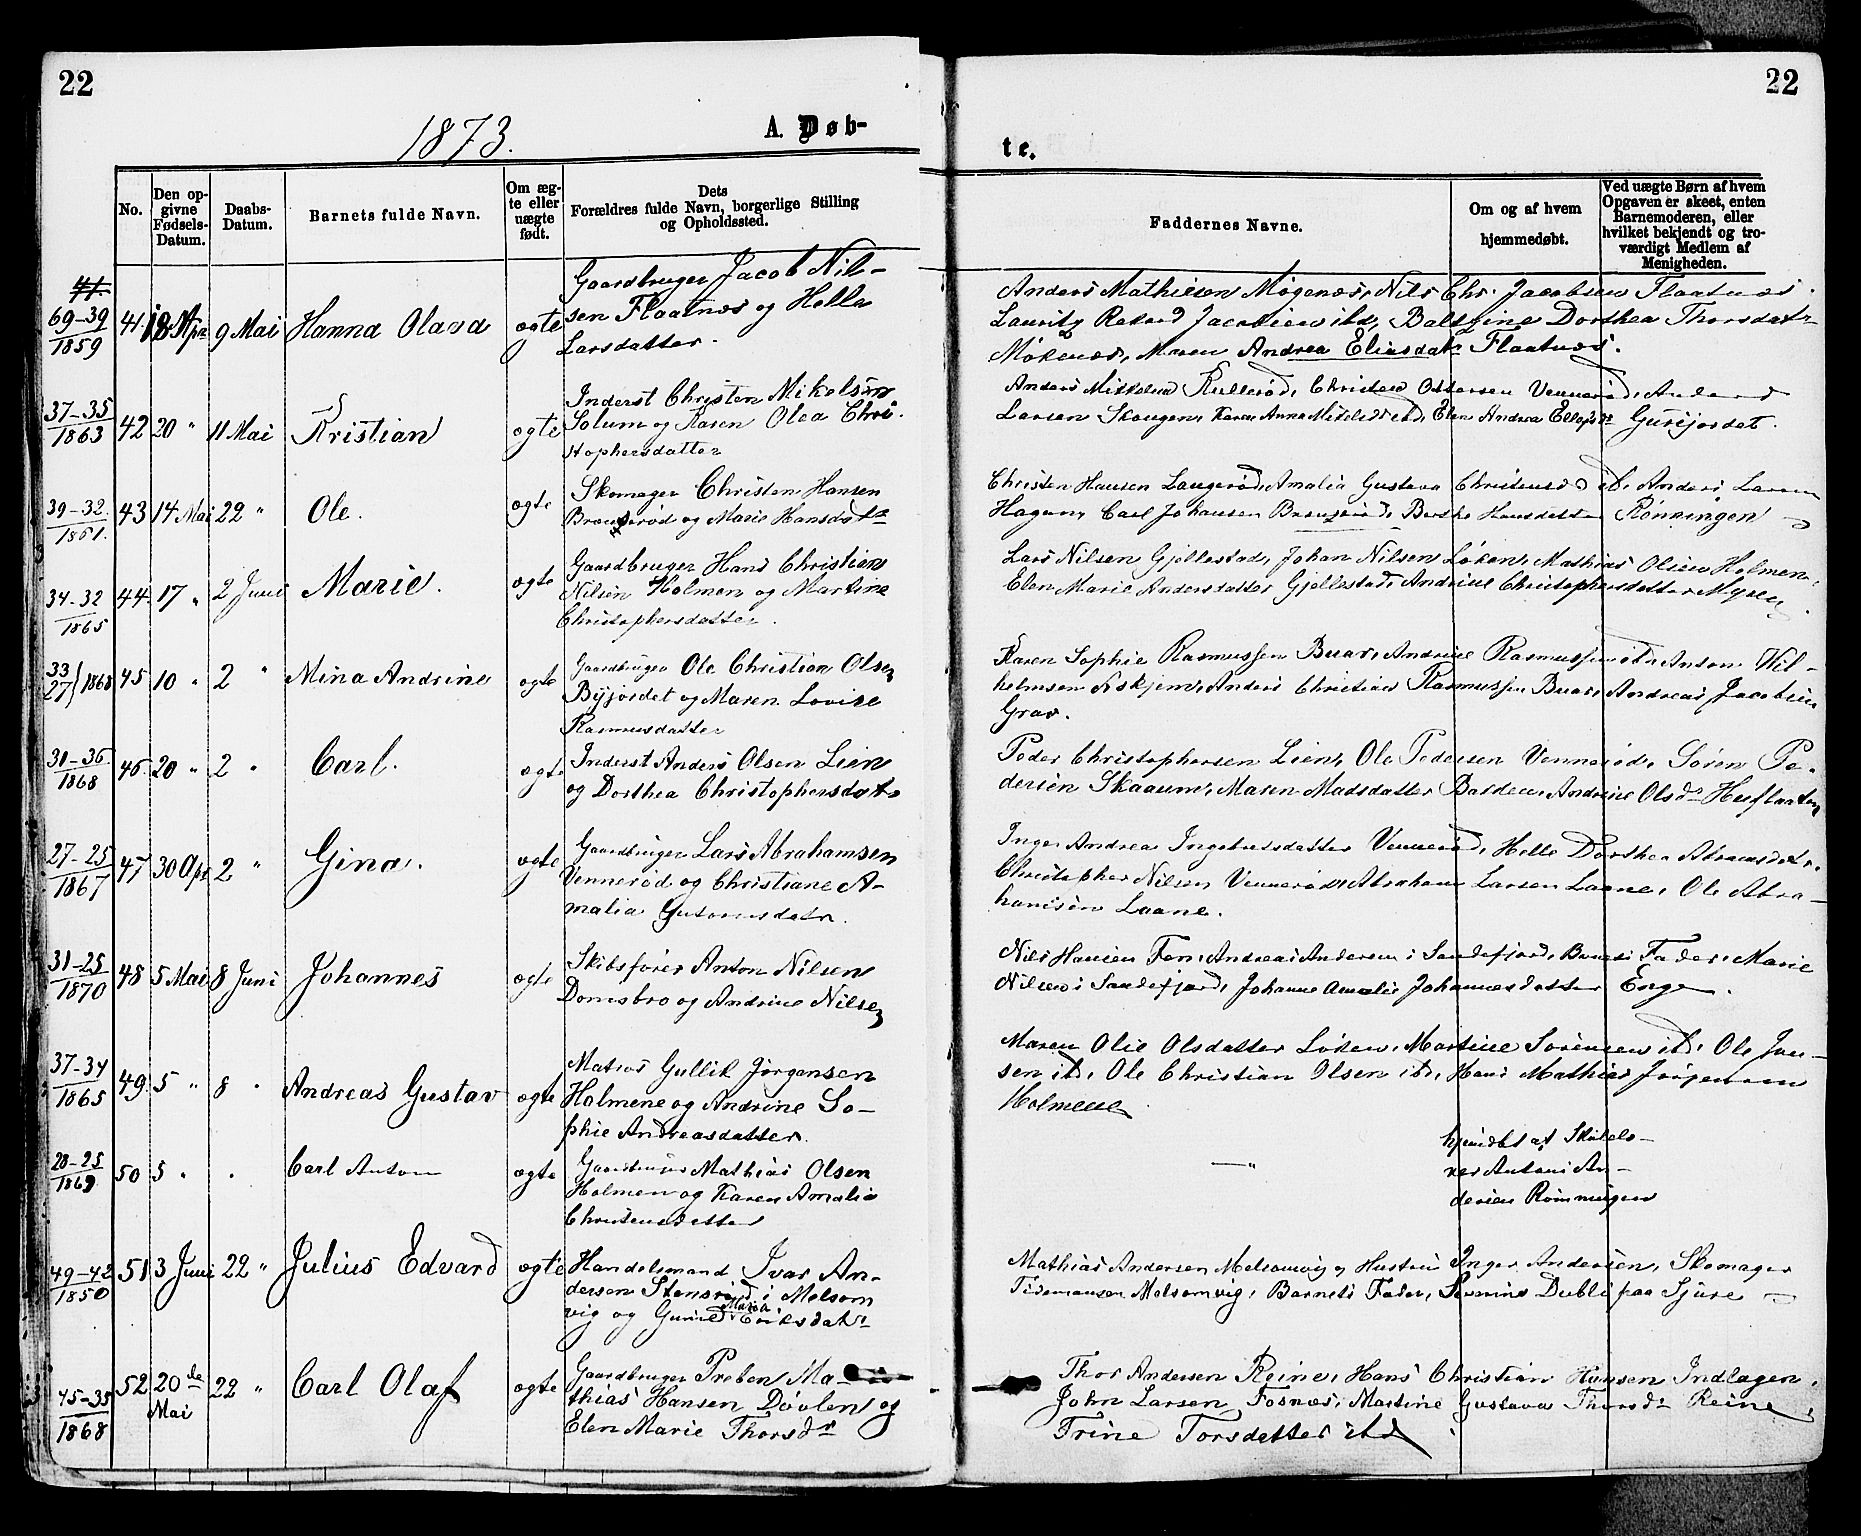 22
22
1873.
A. Døb-
te.
No.
Den op-
givne
Fødsels-
Datum.
Daabs-
Datum.
Barnets fulde Navn.
Om æg-
te eller
uægte
født.
Dets
Forældres fulde Navn, borgerlige Stilling
og Opholdssted.
Faddernes Navne.
Om og af hvem
hjemmedøbt.
Ved uægte Børn af hvem
Opgaven er skeet, enten
Barnemoderen, eller
hvilket bekjendt og tro-
værdigt Medlem af
Menigheden.
41.
69-39
1859
41. 18 Apr 9 Mai Hanna Olava ægte
Gaardbruger Jacob Nil-
sen Flaatnæs og Helle
Larsdatter.
Anders Mathiesen Møgenæs, Nils Chr. Jacobsen Flaatnæs.
Lauritz Jacobsen ibd, Dorthea Thorsdatr
Maren Andrea Eliasdatr Flaatnæs.
37-35
1863
42 20 " 11 Mai Kristian ægte
Inderst Christen Mikelsen
Solum og Karen Olea Chri-
stophersdatter
Anders Mikkelsen Christen Ottersen Vennerød, Anders
Larsen Skougen, Karen Anne ibd, Elen Andrea Gurijordet.
39-32
1861.
43 14 Mai 22 " Ole. ægte
Skomager Christen Hansen
og Marie Hansdatr
Christen Hansen Langerød, Amalia Gustava Christensd ib, Anders Larsen
Hagen, Carl Johansen Berthe Hansdatter Rønningen
34-32
1865
44. 17 " 2 Juni Marie. ægte
Gaardbruger Hans Christian
Nilsen Holmen og Martine
Christophersdatter.
Lars Nilsen Gjellestad, Johan Nilsen Løken, Mathias Olsen Holmen,
Elen Marie Andersdatter Gjellestad, Andrine Christophersdatter Myren.
33
27 1868
45 10 " 2 " Mina Andrine ægte
Gaardbruger Ole Christian Olsen
Byjordet og Maren Lovise
Rasmusdatter
Karen Sophie Rasmussen Buar, Andrine Rasmussen ib, Anton Wil-
helmsen Askjem, Anders Christian Rasmussen Buar, Andreas Jacobsen
Grav.
31-36
1868
46. 20 " 2 " Carl. ægte
Inderst Anders Olsen Lien
og Dorthea Christophersdatr
Peder Christophersen Lien, Ole Pedersen Vennerød, Søren Pe-
dersen Skaaum, Maren Madsdatter Andrine Olsdr
27-25
1867
47 30 Apr 2 " Gina. ægte
Gaardbruger Lars Abrahamsen
Vennerød og Christiane A-
malia
Inger Andrea Ingebretsdatter Vennerød, Helle Dorthea
Christopher Nilsen Vennerød, Abraham Larsen Laane, Ole Abra-
hamsen Laane.
31-25
1870
48 5 Mai 8 Juni Johannes ægte
Skibsfører Anton Nilsen
Domsbro og Andrine Nilsen
Nils Hansen Fen, Andreas Andersen i Sandefjord, Barnets Fader, Marie
Nilsen i Sandefjord, Johanne Amalie Johannesdatter Enge.
37-34
1865
49. 5 " 8 " Andreas Gustav ægte
Matros Gullik Jørgensen
Holmene og Andrine So-
phie Andreasdatter.
Maren Olie Olsdatter Løken, Martine Sørensen ibd, Ole Jan-
sen ibd, Ole Christian Olsen ibd, Hans Mathias Jørgensen
Holmene
28-25
1869
50 5 " . Carl Anton ægte
Gaardbruger Mathias Olsen
Holmen og Karen Amalie
Christensdatter
—"—
hjemdbt af Skolelæ-
rer Antoni An-
dersen Rønningen
49-42
1850
51 3 Juni 22 " Julius Edvard ægte
Handelsmand Ivar An-
dersen i Melsom
vig og Maria Eriksdatr
Mathias Andersen Melsomvig og Hustru Inger Andersen, Skomager
Tidemansen Melsomvig, Barnets Fader, paa
45-35
1868
52 20de
Mai
22 " Carl Olaf ægte
Gaardbruger Preben Ma-
thias Hansen Døvlen og
Elen Marie Thorsdr
Thor Andersen Reine, Hans Christian Hansen Indlagen,
John Larsen Fosnæs, Martine Gustava Thorsdr Reine,
Trine Torsdatter ibd